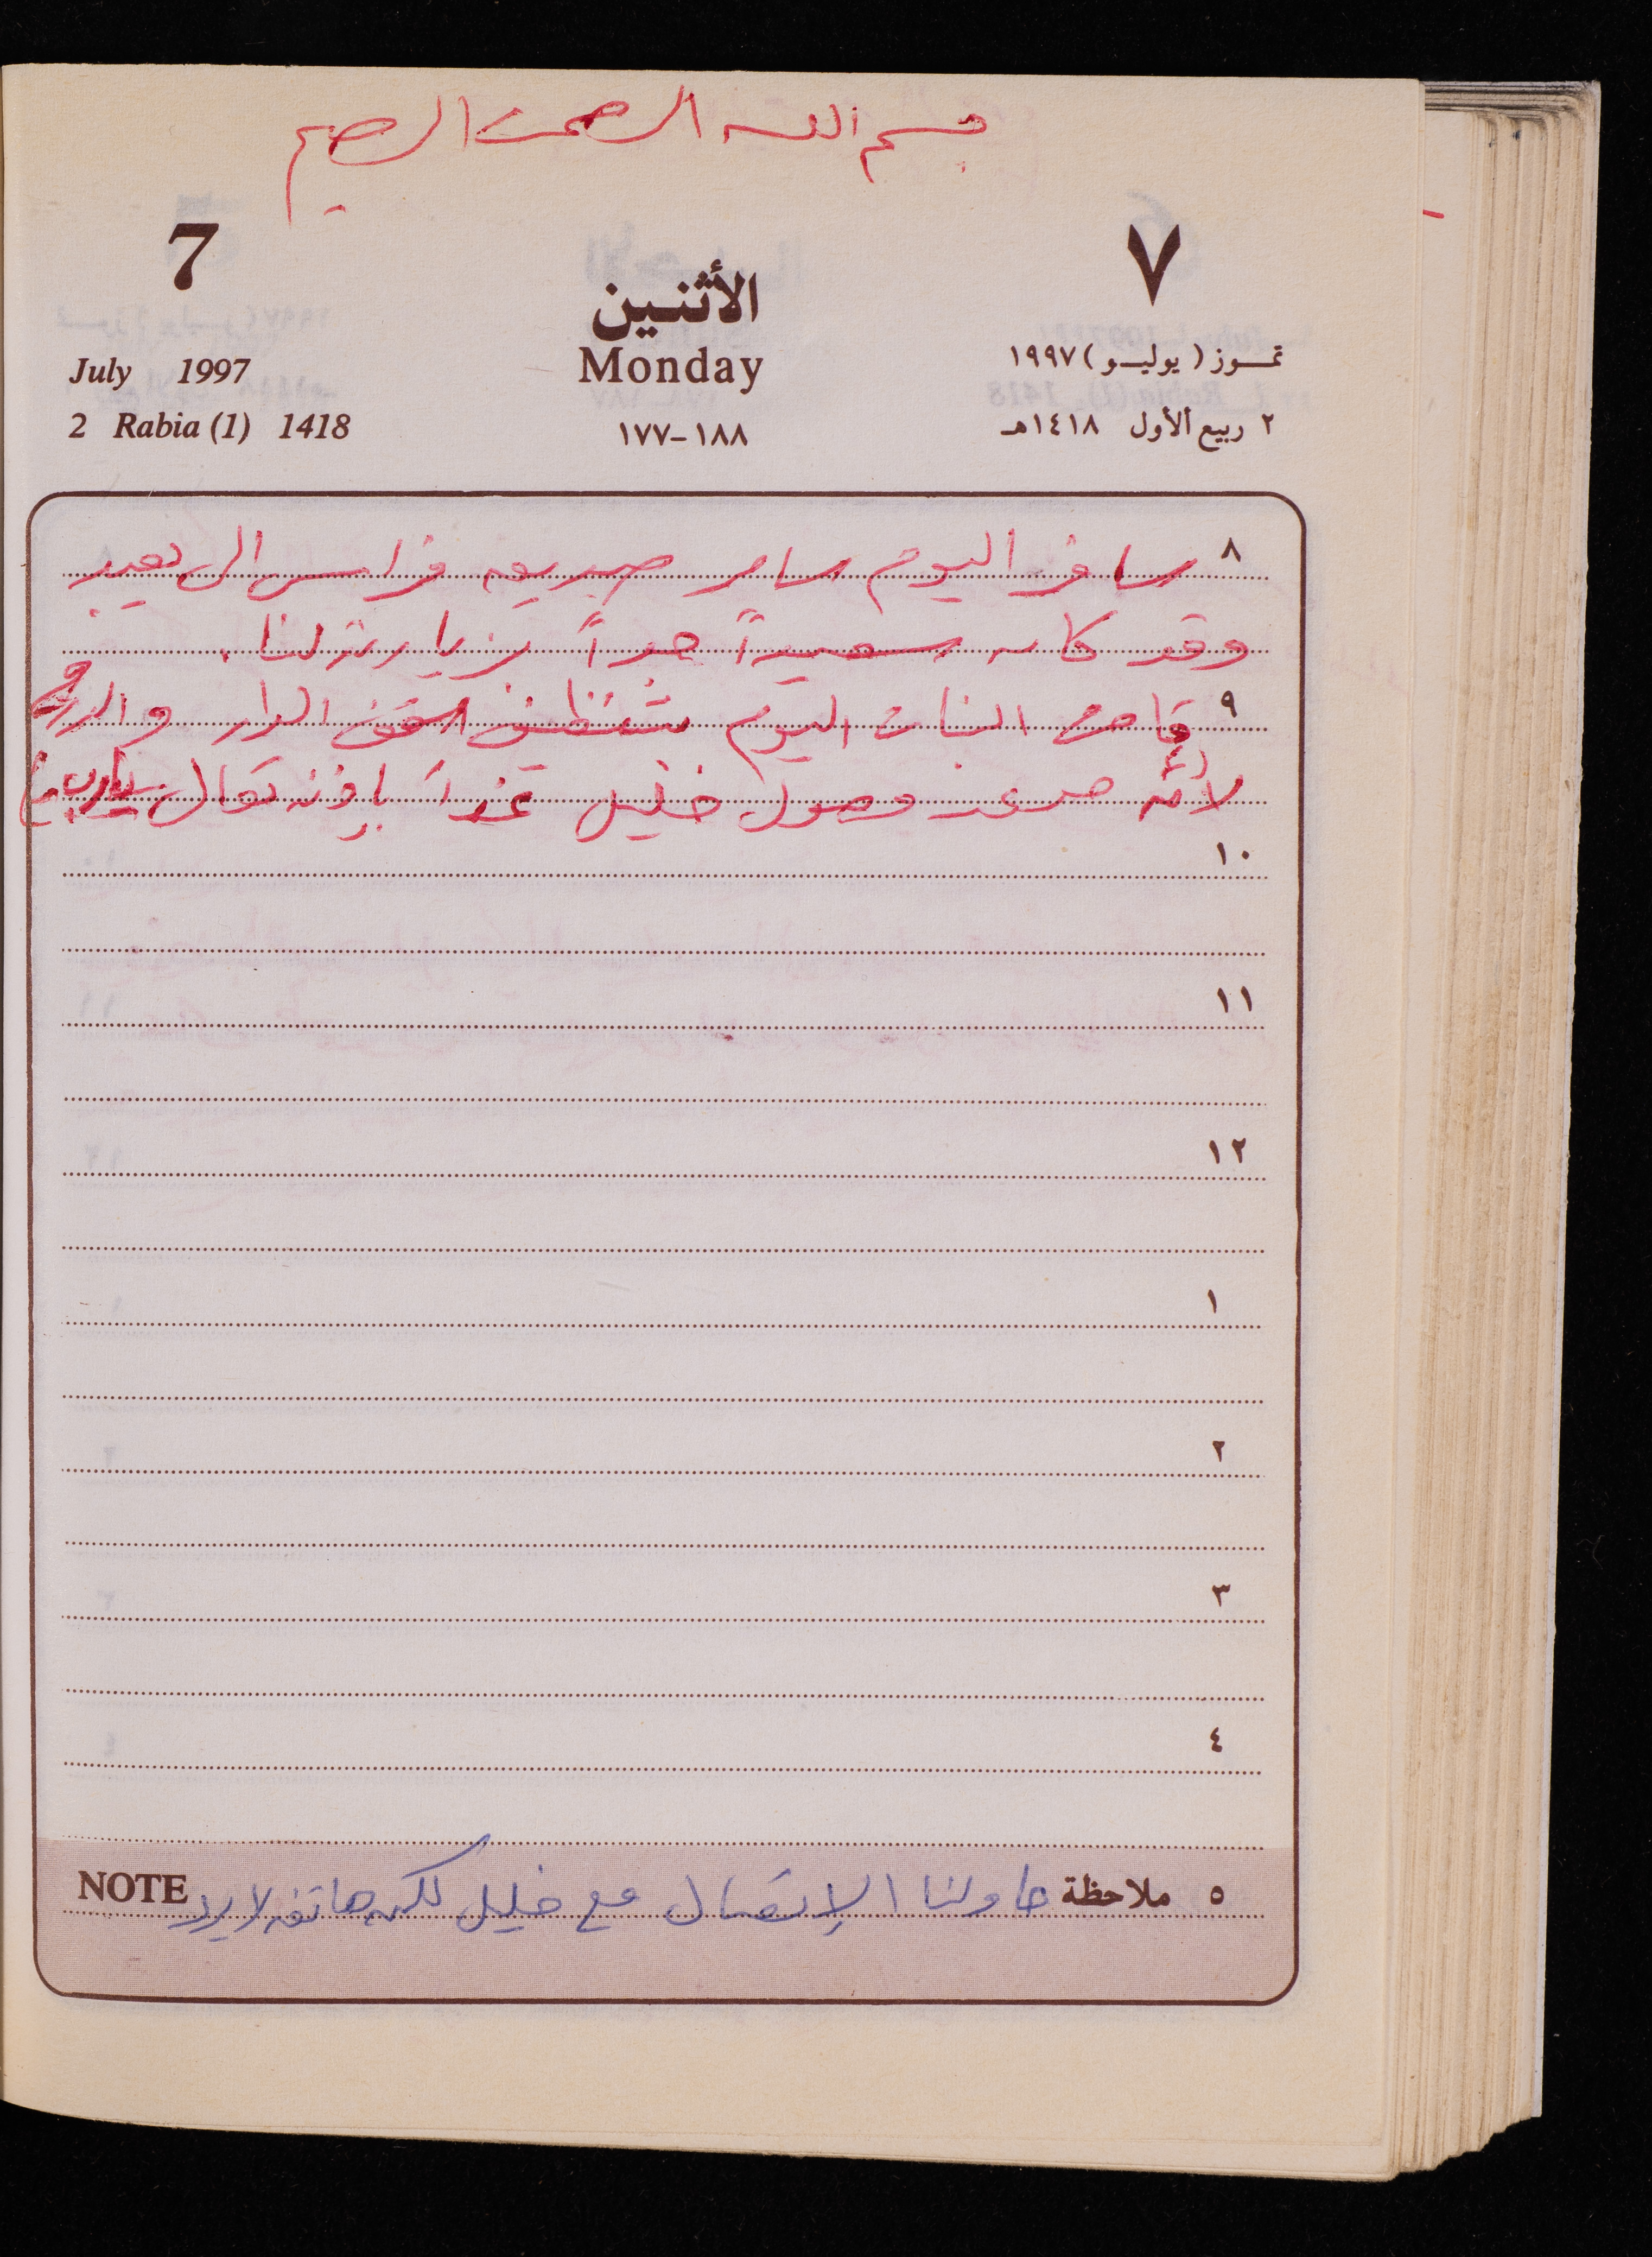 بسم الله الرحمن الرحيم
7 الأثنين ٧
July 1997 Monday تمـوز ( يوليـو ) ١٩٩٧
2 Rabia (1) 1418 ١٨٨-١٧٧ ٢ ربيع الأول ١٤١٨هـ
٨ سافر اليوم سامر صديق فراس الى
وقد كان سعيداً جداً بزيارته لنا .
٩ قامت البنات اليوم بتنظيف الدار والدرج
لأنه موعد وصول خليل غداً بإذنه تعالى
١٠
١١
١٢
١
٢
٣
٤
٥ ملاحظة حاولنا الإتصال مع خليل لكن هاتفه لا يرد NOTE